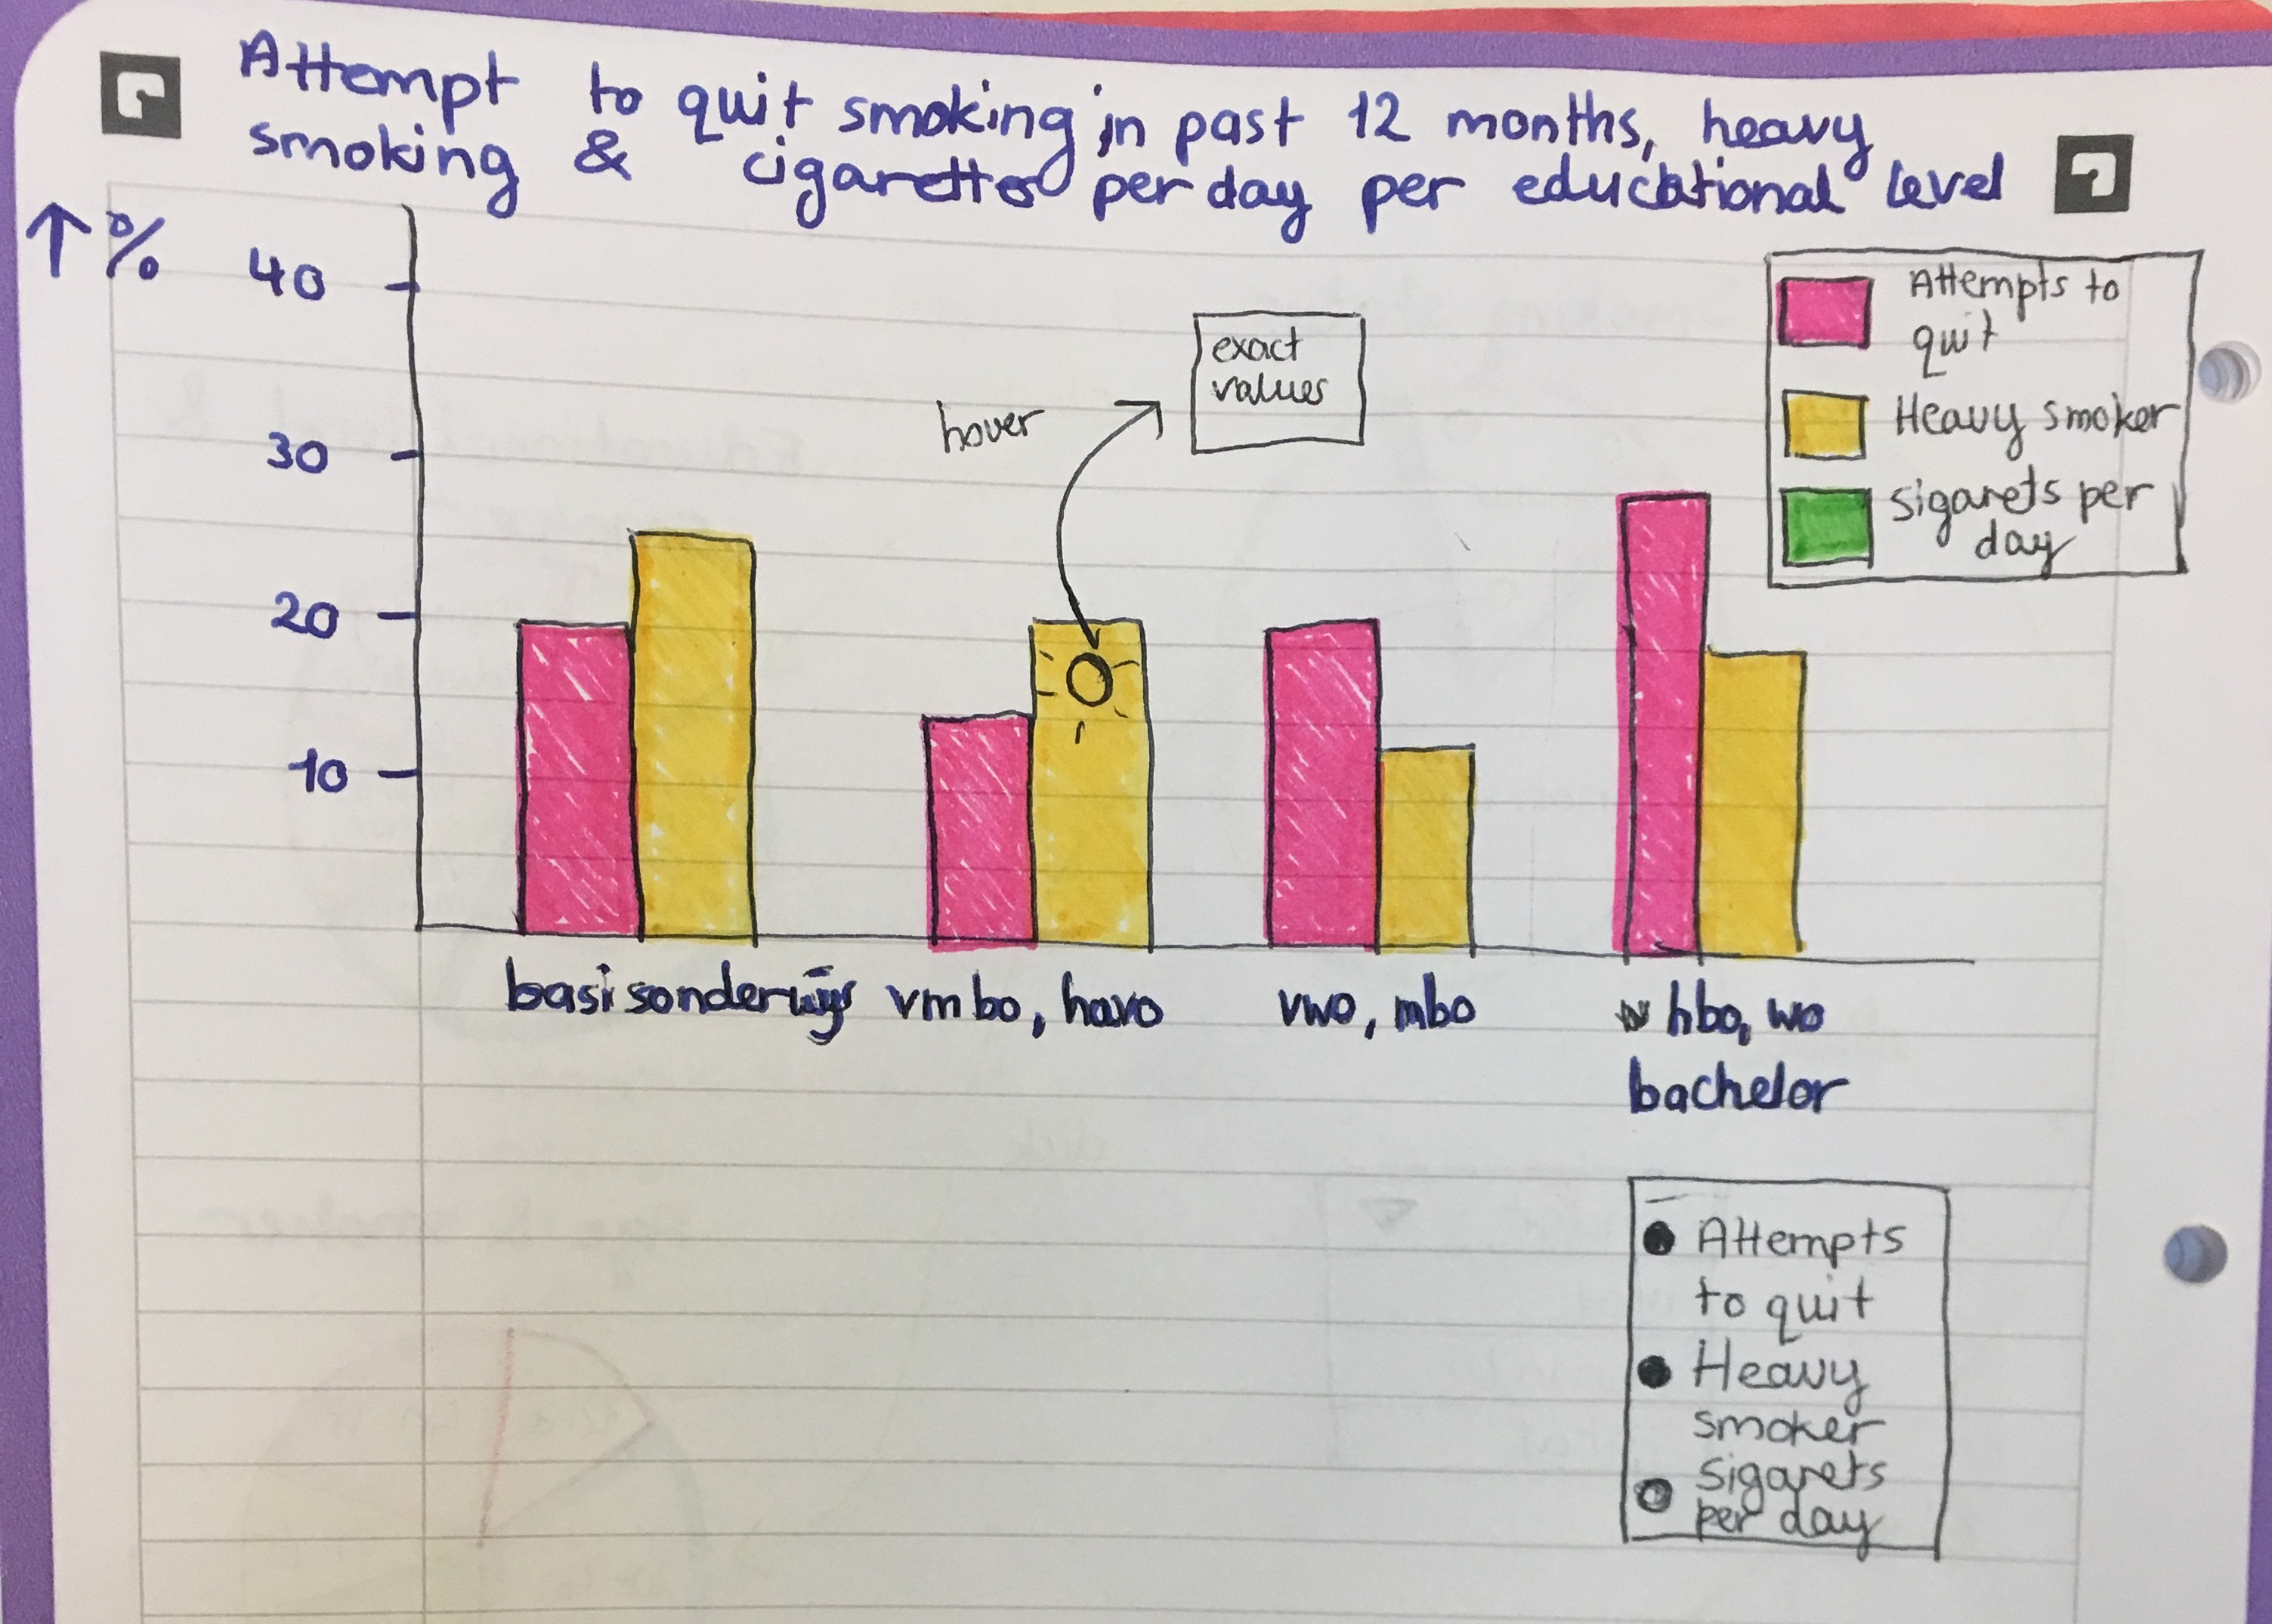 Attempt to quit smoking in past 12 months, heavy
smoking & cigarettes per day per educational level
↑ %
40
30
20
10
hover
exact
values
Attempts to
quit
Heavy smoker
Sigarets per
day
basisonderwijs vmbo, havo vwo, mbo hbo, wo
bachelor
Attempts
to quit
Heavy
smoker
Sigarets
per day